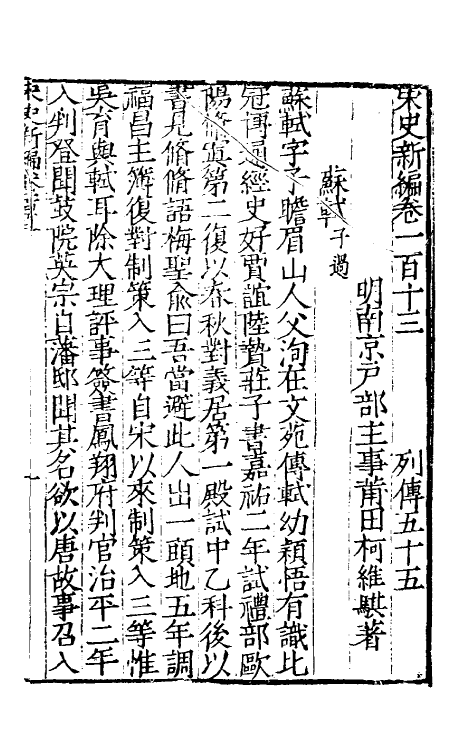 宋史新編卷一百十三　列傳五十五
明南京戶部主事莆田柯維騏著
蘇軾子過
蘇軾字子瞻眉山人父洵在文苑傳軾幼穎悟有識比
冠博通經史好賈誼陸贄莊子書嘉祐二年試禮部歐
陽脩寘第二復以春秋對義居第一殿試中乙科後以
書見脩脩語梅聖俞曰吾當避此人出一頭地五年調
福昌主簿復對制策入三等自宋以來制策入三等惟
吳育與軾耳除大理評事簽書鳳翔府判官治平二年
入判登聞鼓院英宗自藩邸聞其名欲以唐故事召入
宋史新編卷
一